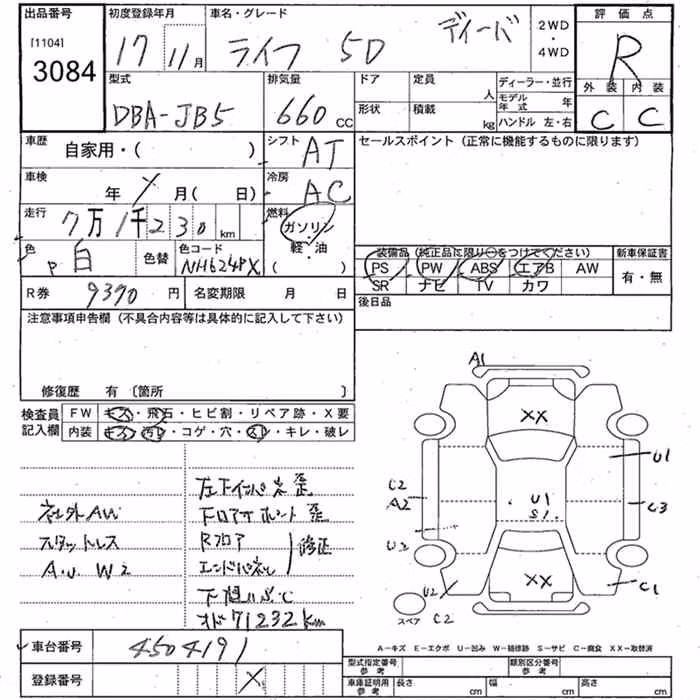 出品番号
[1104]
3084
初度登録年月
17 11月
車名・グレード
ライフ 5D ディーバ
2WD
・
4WD
評価点
R
外装 内装
C C
型式
DBA-JB5
排気量
660 CC
ドア
定員
人
形状
積載
kg
ディーラー・並行
モデル年式 年
ハンドル 左・右
車歴
自家用・( )
シフト
AT
セールスポイント (正常に機能するものに限ります)
車検
年 月( 日)
冷房
AC
走行
7万1千230 km
燃料
ガソリン
軽・油
( )
色
P 白
色替
色コード
NH624PX
装備品 (純正品に限り○をつけてください)
PS PW ABS エアB AW
SR ナビ TV カワ
新車保証書
有・無
R券 9390 円
名変期限 月 日
後日品
注意事項申告欄 (不具合内容等は具体的に記入して下さい)
修復歴 有 〔箇所 〕
検査員記入欄
FW キズ・飛石・ヒビ割・リペア跡・X要
内装 キズ・汚レ・コゲ・穴・スレ・キレ・破レ
社外AW
スタットレス
A.U W2
左下インパネ歪
フロアサポート歪
Rフロア
エンドパネル
修正
下廻りS.C
オド71232km
A1
XX
U1
C2
A2
U1
S1
C3
U2
XX
U2
C2
C1
スペア
A-キズ E-エクボ U-凹み W-補修跡 S-サビ C-腐食 XX-取替済
車台番号
4504191
登録番号
X
型式指定番号
参考
類別区分番号
参考
車庫証明用
参考
長さ cm
幅 cm
高さ cm